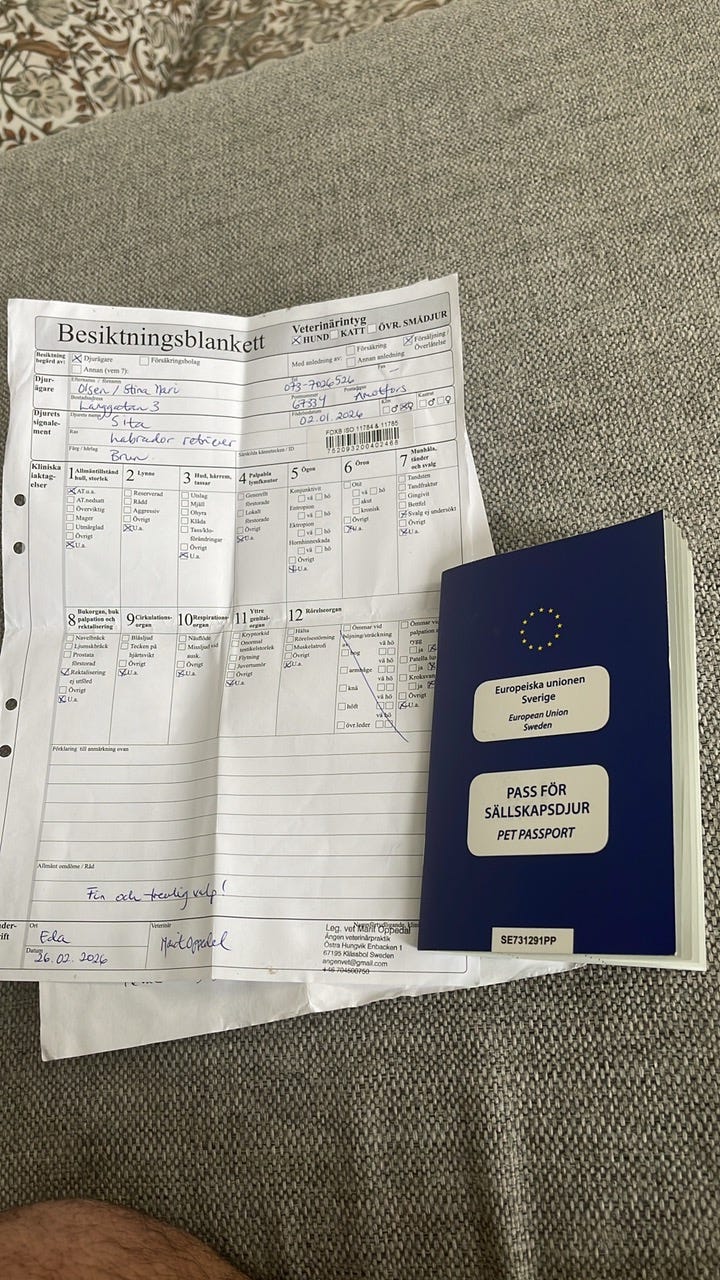 Besiktningsblankett
Veterinärintyg
HUND KATT ÖVR. SMÅDJUR
Besiktning begärd av:
Djurägare Försäkringsbolag
Annan (vem ?):
Med anledning av:
Försäkring Försäljning/Överlåtelse
Annan anledning
Djurägare
Efternamn / förnamn
Olsen / Stina Mari
073-7026526
Fax
Bostadsadress
Långgatan 3
Postnummer
67334
Postadress
Åmotfors
Djurets signalement
Djurets namn
Sita
Födelsedatum
02.01.2026
Kön
Kastrat
Ras
labrador retriever
Färg / hårlag
Brun
Särskilda kännetecken / ID
FOXB ISO 11784 & 11785
752093200402468
Kliniska iakttagelser
1 Allmäntillstånd hull, storlek
AT u.a.
AT.nedsatt
Överviktig
Mager
Utmärglad
Övrigt
U.a.
2 Lynne
Reserverad
Rädd
Aggressiv
Övrigt
U.a.
3 Hud, hårrem, tassar
Utslag
Mjäll
Ohyra
Klåda
Tass/klo-förändringar
Övrigt
U.a.
4 Palpabla lymfkörtlar
Generellt förstorade
Lokalt förstorade
Övrigt
U.a.
5 Ögon
Konjunktivit
vä hö
Entropion
vä hö
Ektropion
vä hö
Hornhinneskada
vä hö
U.a.
6 Öron
Otit
vä hö
akut
kronisk
Övrigt
U.a.
7 Munhåla, tänder och svalg
Tandsten
Tandfraktur
Gingivit
Bettfel
Svalg ej undersökt
Övrigt
U.a.
8 Bukorgan, buk palpation och rektalisering
Navelbråck
Ljumskbråck
Prostata förstorad
Rektalisering ej utförd
Övrigt
U.a.
9 Cirkulationsorgan
Blåsljud
Tecken på hjärtsvikt
Övrigt
U.a.
10 Respirationsorgan
Näsflödt
Missljud vid ausk.
Övrigt
U.a.
11 Yttre genitalorgan
Kryptorkid
Onormal testikelstorlek
Flytning
Juvertumör
Övrigt
U.a.
12 Rörelseorgan
Hälta
Rörelsestörning
Muskelatrofi
Övrigt
U.a.
Ömmar vid böjning/sträckning
vä hö
bog
vä hö
armbåge
vä hö
knä
vä hö
höft
vä hö
övr.leder
Ömmar vid palpation
rygg
ja
Patella
ja
ja
Övrigt
U.a.
Förklaring till anmärkning ovan
Allmänt omdöme / Råd
Fin och trevlig valp!
Ort
Eda
Datum
26.02.2026
Veterinär
Marit Oppedal
Leg. vet Marit Oppedal
Ängen veterinärpraktik
Östra Hungvik Enbacken 1
67195 Klässbol Sweden
angenvet@gmail.com
+46 704600750
Europeiska unionen
Sverige
European Union
Sweden
PASS FÖR
SÄLLSKAPSDJUR
PET PASSPORT
SE731291PP